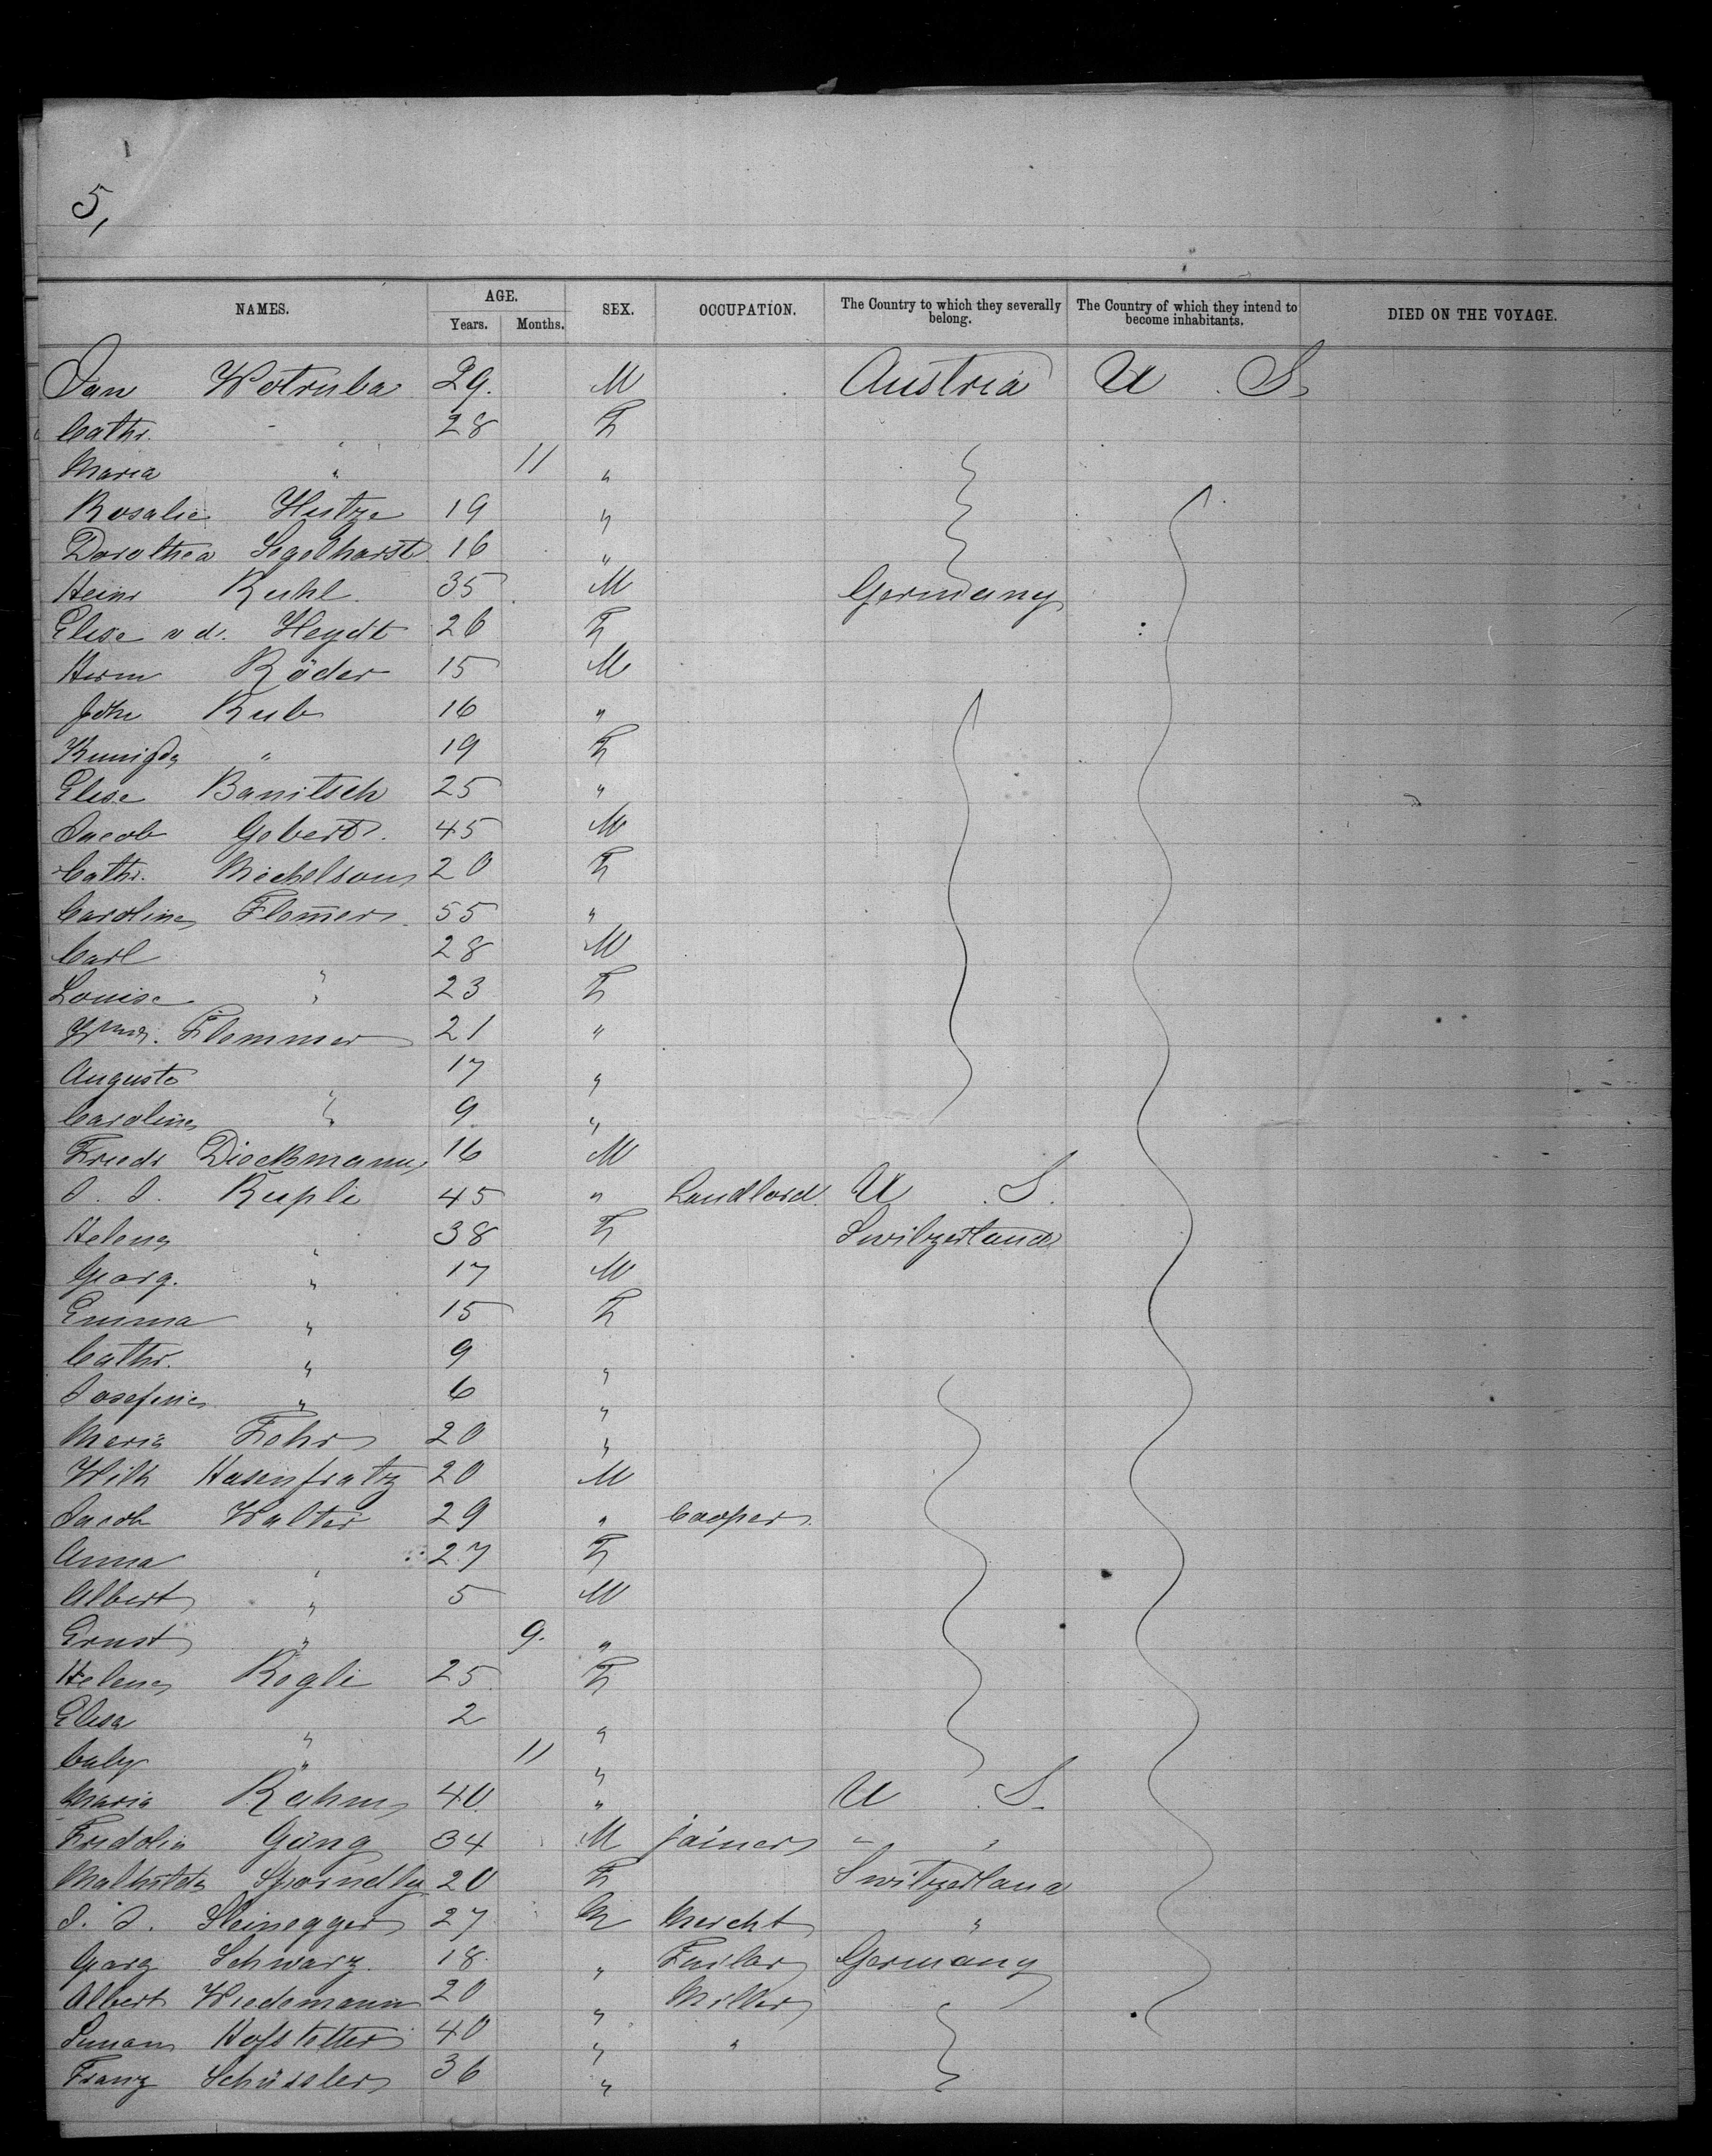 5,
NAMES. AGE. Years. Months. SEX. OCCUPATION. The Country to which they severally belong. The Country of which they intend to become inhabitants. DIED ON THE VOYAGE.
Jan Wotruba 29. M Austria U. S.
Cathr. " 28 F
Maria " 11 "
Rosalie 19 "
Dorothea Segelhorst 16 "
Heinr Ruhl 35 M Germany
Elise v d. Heydt 26 F
Herm Röder 15 M
Joh Rub 16 "
" 19 F
Elise Banitsch 25 "
Jacob Gebert 45 M
Cathr. Michelson 20 F
Caroline Flom̅er 55 "
Carl 28 M
Louise " 23 F
Flommer 21 "
Auguste " 17 "
Caroline " 9 "
Friedr Dieckmann 16 M
J. J. Rupli 45 " Landlord U. S.
Helena " 38 F Switzerland
Georg. " 17 M
Emma " 15 F
Cathr. " 9 "
Josefine " 6 "
Maria Fehr 20 "
Wilh Hasenfratz 20 M
Jacob Walter 29 " Cooper
Anna " 27 F
Albert " 5 M
Ernst " 9. "
Helena Rogli 25 F
Elisa " 2 "
" 11 "
Maria Rahm 40 " U. S.
Fridolin 34 M joiner " "
20 F Switzerland
J. J. Steinegger 27 M Mercht "
Georg Schwarz 18 " Germany
Albert Wiedemann 20 " Miller
Hofstetter 40 " "
Franz Schüssler 36 "